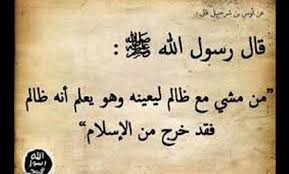 عن أوس بن شرحبيل قال :
قال رسول الله ﷺ :
"من مشي مع ظالم ليعينه وهو يعلم أنه ظالم
فقد خرج من الإسلام"
الله
رسول
محمد